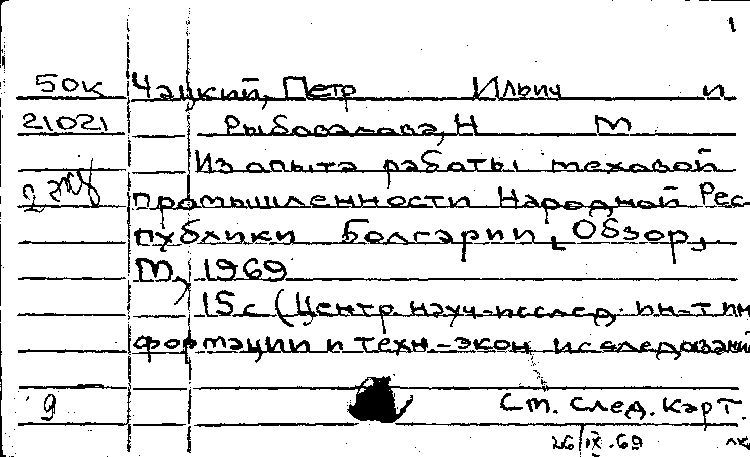 1
50к Чацкий, Петр Ильич и
21021 Рыбовалова, Н М
Из опыта работы меховой
2 экз промышленности Народной Рес-
публики Болгарии. [Обзор]
М, 1969
15 с (Центр. науч-исслед. ин-т ин
формации и техн.-экон исследований
9 См. след. карт.
26/IX.69